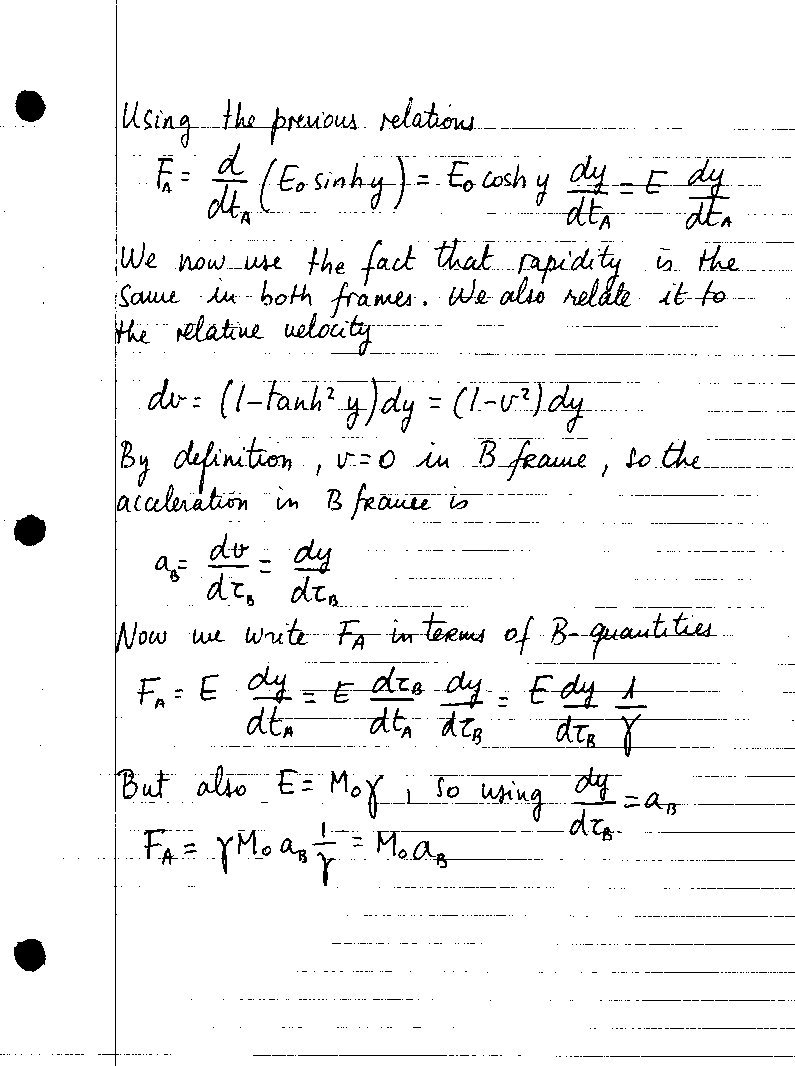 Using the previous relations
F_A = d/dt_A (E₀ sinh y) = E₀ cosh y dy/dt_A = E dy/dt_A
We now use the fact that rapidity is the
same in both frames. We also relate it to
the relative velocity
dv = (1-tanh² y) dy = (1-v²) dy
By definition, v=0 in B frame, so the
acceleration in B frame is
a_B = dv/dτ_B = dy/dτ_B
Now we write F_A in terms of B-quantities
F_A = E dy/dt_A = E dτ_B/dt_A dy/dτ_B = E dy/dτ_B 1/γ
But also E = M₀γ, so using dy/dτ_B = a_B
F_A = γM₀ a_B 1/γ = M₀ a_B